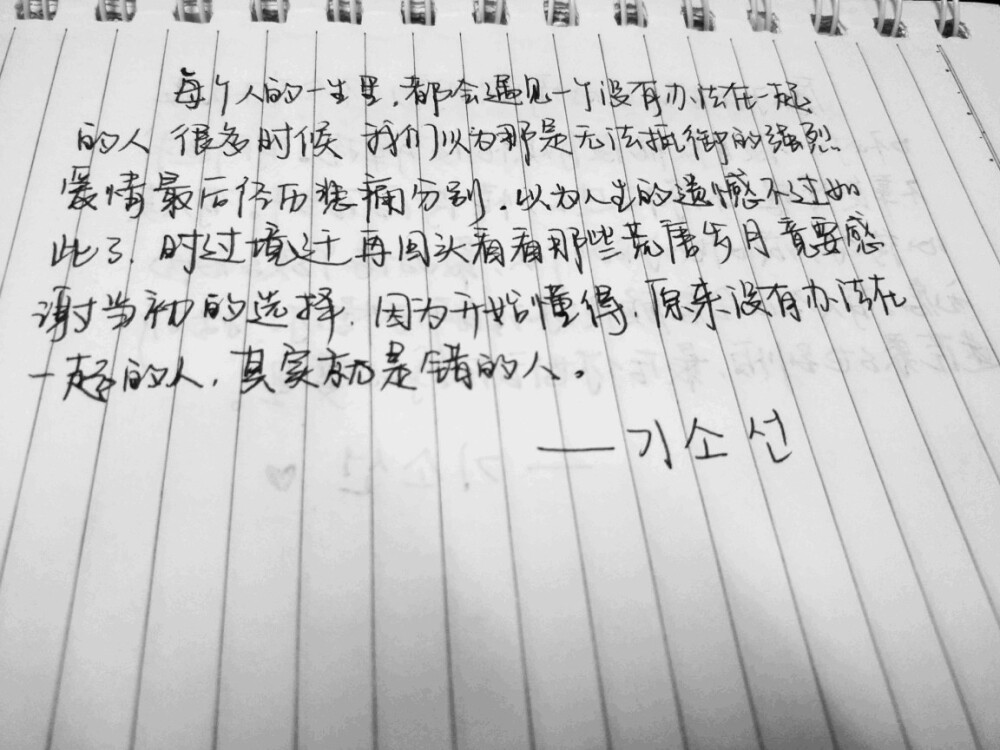 每个人的一生里,都会遇见一个没有办法在一起
的人 很多时候 我们以为那是无法抵御的强烈
爱情最后经历悲痛分别,以为人生的遗憾不过如
此了,时过境迁再回头看看那些荒唐岁月竟要感
谢当初的选择,因为开始懂得,原来没有办法在
一起的人,其实就是错的人。
—— 기소선